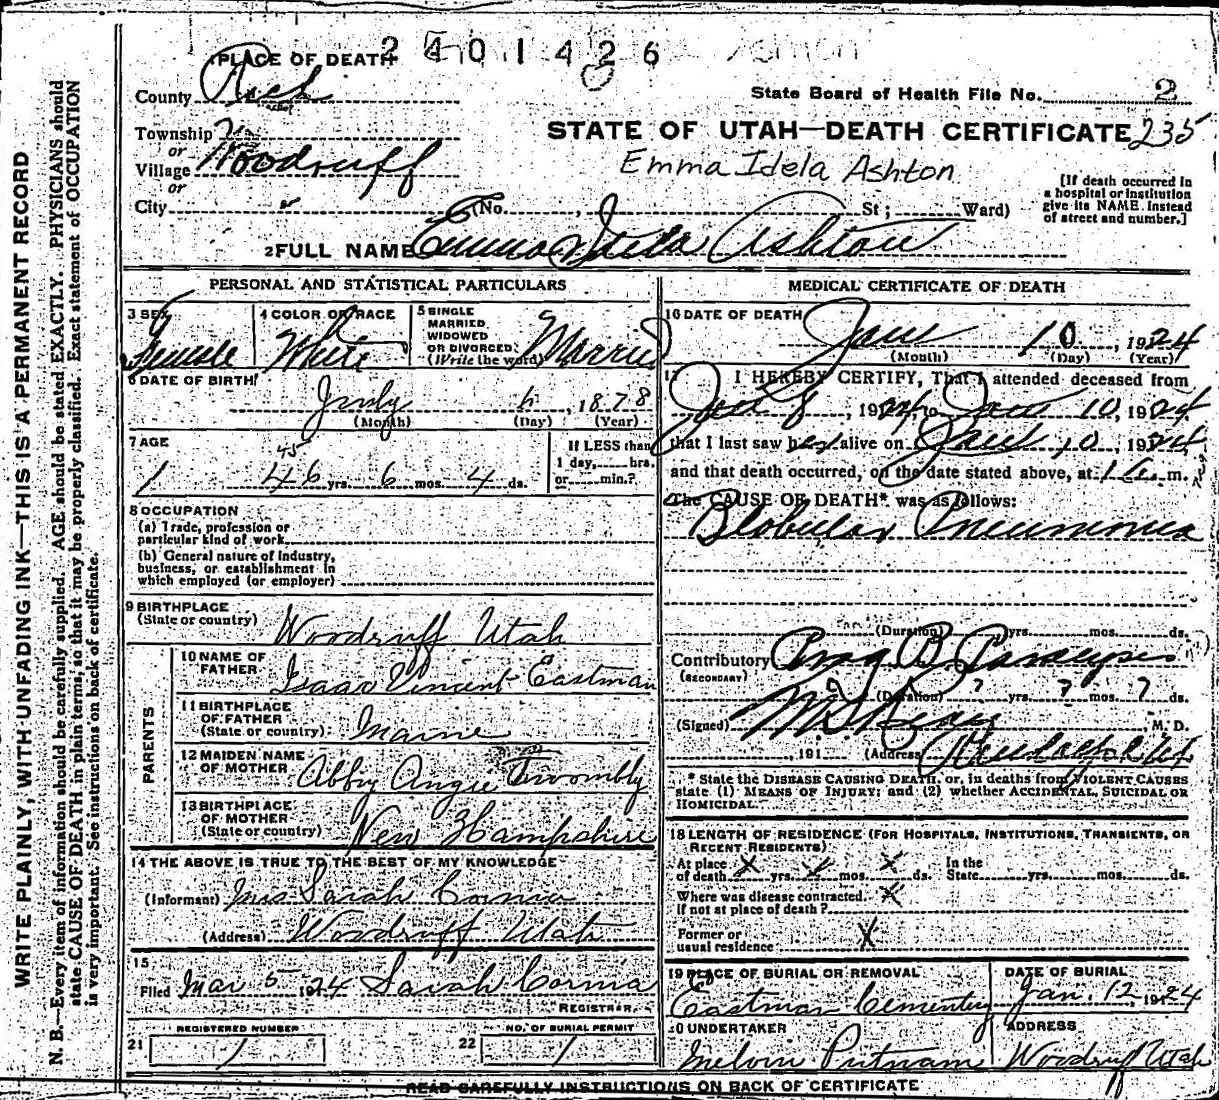 WRITE PLAINLY, WITH UNFADING INK—THIS IS A PERMANENT RECORD
N. B.—Every item of information should be carefully supplied. AGE should be stated EXACTLY. PHYSICIANS should
state CAUSE OF DEATH in plain terms, so that it may be properly classified. Exact statement of OCCUPATION
is very important. See instructions on back of certificate.
PLACE OF DEATH 2401426
County Rich
State Board of Health File No. 2
Township
or
STATE OF UTAH—DEATH CERTIFICATE 235
Village Woodruff
Emma Idela Ashton
or
[If death occurred in
a hospital or institution
give its NAME instead
of street and number.]
City (No. , St; Ward)
2 FULL NAME Emma Idela Ashton
PERSONAL AND STATISTICAL PARTICULARS
3 SEX Female
4 COLOR OR RACE White
5 SINGLE
MARRIED
WIDOWED
OR DIVORCED
(Write the word) Married
6 DATE OF BIRTH
July 6, 1878
(Month) (Day) (Year)
7 AGE
45
46 yrs. 6 mos. 4 ds.
If LESS than
1 day, hrs.
or min.?
8 OCCUPATION
(a) Trade, profession or
particular kind of work
(b) General nature of Industry,
business, or establishment in
which employed (or employer)
9 BIRTHPLACE
(State or country) Woodruff Utah
PARENTS
10 NAME OF
FATHER Isaac Vincent Eastman
11 BIRTHPLACE
OF FATHER
(State or country) Maine
12 MAIDEN NAME
OF MOTHER Abby Angie Twombly
13 BIRTHPLACE
OF MOTHER
(State or country) New Hampshire
14 THE ABOVE IS TRUE TO THE BEST OF MY KNOWLEDGE
(Informant) Mrs Sarah Cornia
(Address) Woodruff Utah
15
Filed Mar 5 1924 Sarah Cornia
REGISTRAR.
REGISTERED NUMBER
21 1
NO. OF BURIAL PERMIT
22 1
MEDICAL CERTIFICATE OF DEATH
16 DATE OF DEATH
Jan 10, 1924
(Month) (Day) (Year)
17 I HEREBY CERTIFY, That I attended deceased from
Jan 8, 1924 to Jan 10, 1924
that I last saw her alive on Jan 10, 1924
and that death occurred, on the date stated above, at m.
The CAUSE OF DEATH* was as follows:
Globular Pneumonia
(Duration) yrs. mos. ds.
Contributory
(SECONDARY)
(Duration) ? yrs. ? mos. ? ds.
(Signed) M. D.
, 191 (Address) Randolph Ut
* State the DISEASE CAUSING DEATH, or, in deaths from VIOLENT CAUSES
state (1) MEANS OF INJURY; and (2) whether ACCIDENTAL, SUICIDAL OR
HOMICIDAL.
18 LENGTH OF RESIDENCE (FOR HOSPITALS, INSTITUTIONS, TRANSIENTS, OR
RECENT RESIDENTS)
At place In the
of death X yrs. X mos. X ds. State yrs. mos. ds.
Where was disease contracted. X
If not at place of death?
Former or
usual residence X
19 PLACE OF BURIAL OR REMOVAL
Eastman Cementery
DATE OF BURIAL
Jan. 12, 1924
20 UNDERTAKER
Melvin Putnam
ADDRESS
Woodruff Utah
READ CAREFULLY INSTRUCTIONS ON BACK OF CERTIFICATE